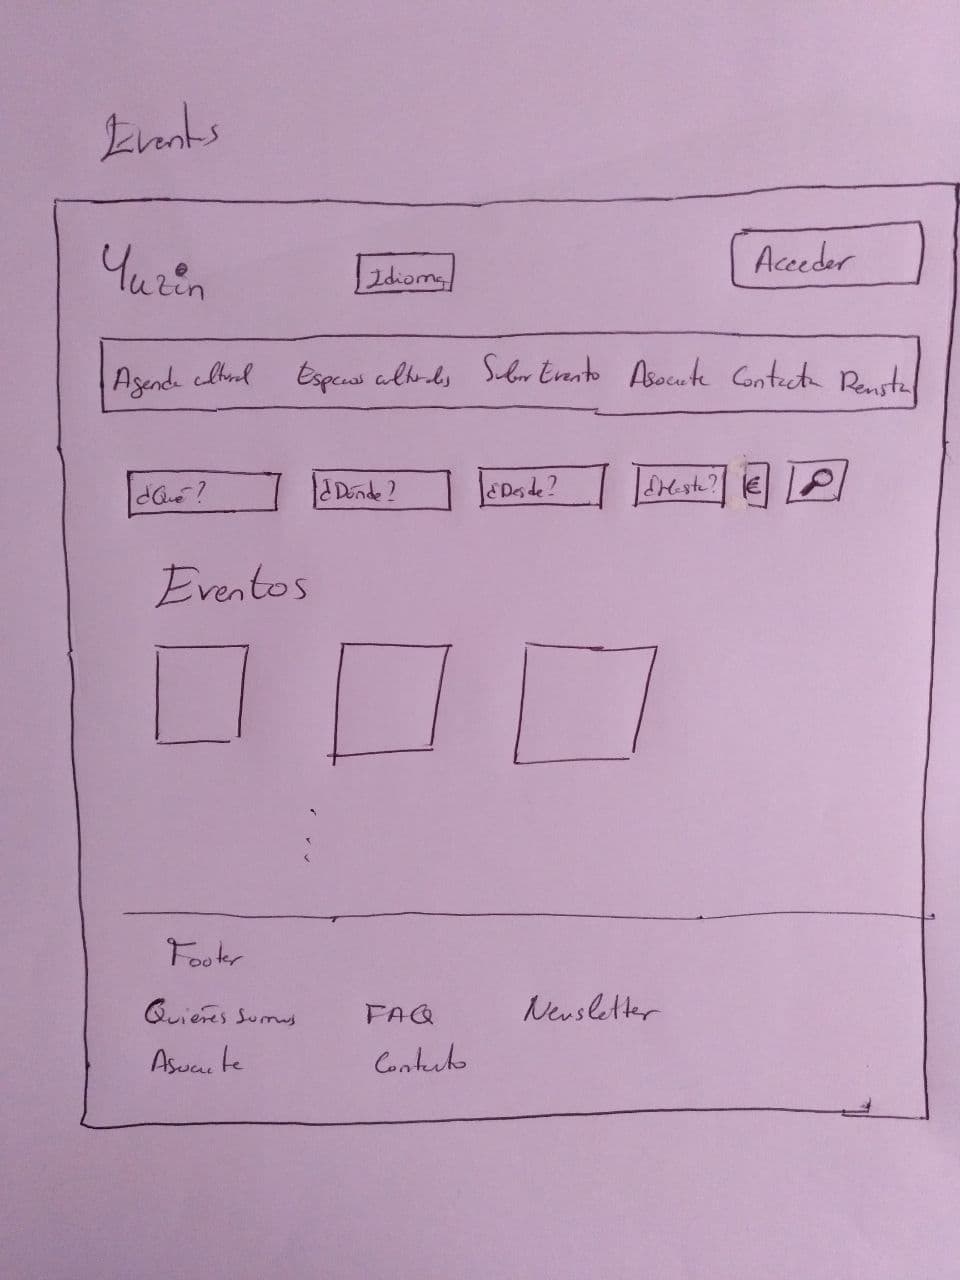 Events
Yuzin Idioma Acceder
Agenda cultural Espacios culturales Subir Evento Asociate Contacta Revista
¿Qué? ¿Dónde? ¿Desde? ¿Hasta? €
Eventos
Footer
Quiénes somos FAQ Newsletter
Asociate Contacto